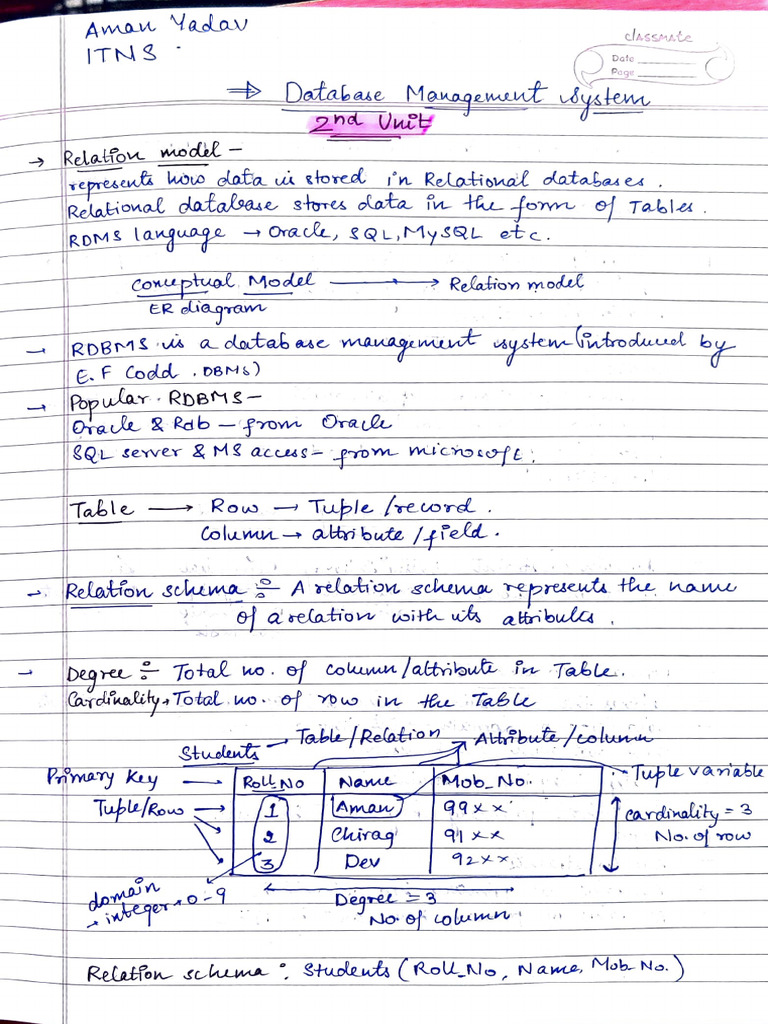 Aman Yadav
ITNS
classmate
Date
Page
⇒ Database Management System
2nd Unit
→ Relation model -
represents how data is stored in Relational databases.
Relational database stores data in the form of Tables.
RDMS language → Oracle, SQL, MySQL etc.
Conceptual Model → Relation model
ER diagram
→ RDBMS is a database management system (introduced by
E.F Codd. DBMS)
→ Popular. RDBMS -
Oracle & Rdb - from Oracle
SQL server & MS access - from microsoft.
Table → Row → Tuple / record.
Column → attribute / field.
→ Relation schema ÷ A relation schema represents the name
of a relation with its attributes.
→ Degree ÷ Total no. of column/attribute in Table.
Cardinality → Total no. of row in the Table
Students → Table/Relation → Attribute/column
Primary Key → Roll_No Name Mob_No. Tuple variable
Tuple/Row → 1 Aman 99xx cardinality = 3
2 Chirag 91xx No. of row
3 Dev 92xx
domain
→ integer → 0-9
Degree = 3
No. of column
Relation schema : Students (Roll_No, Name, Mob_No.)